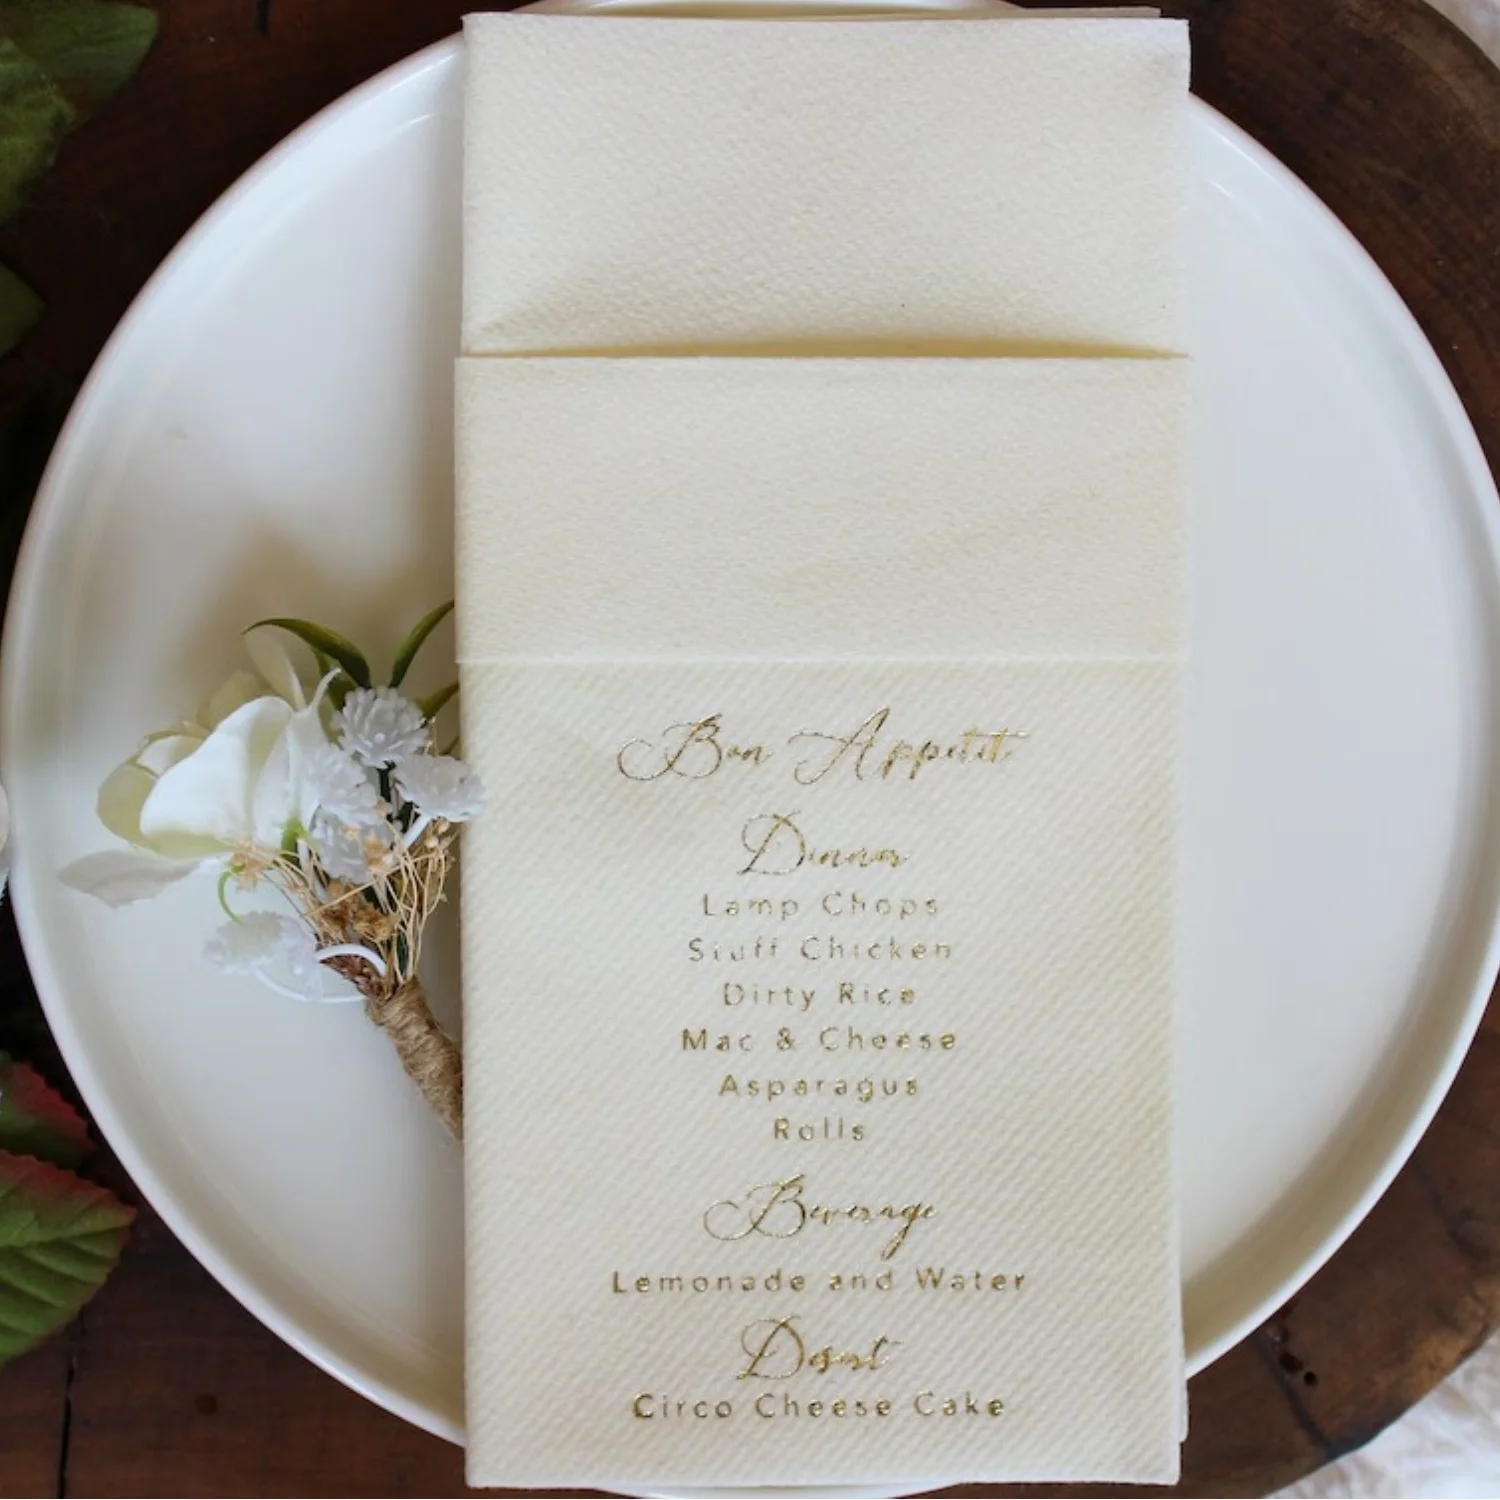 Bon Appetit
Dinner
Lamp Chops
Stuff Chicken
Dirty Rice
Mac & Cheese
Asparagus
Rolls
Beverage
Lemonade and Water
Desert
Circo Cheese Cake